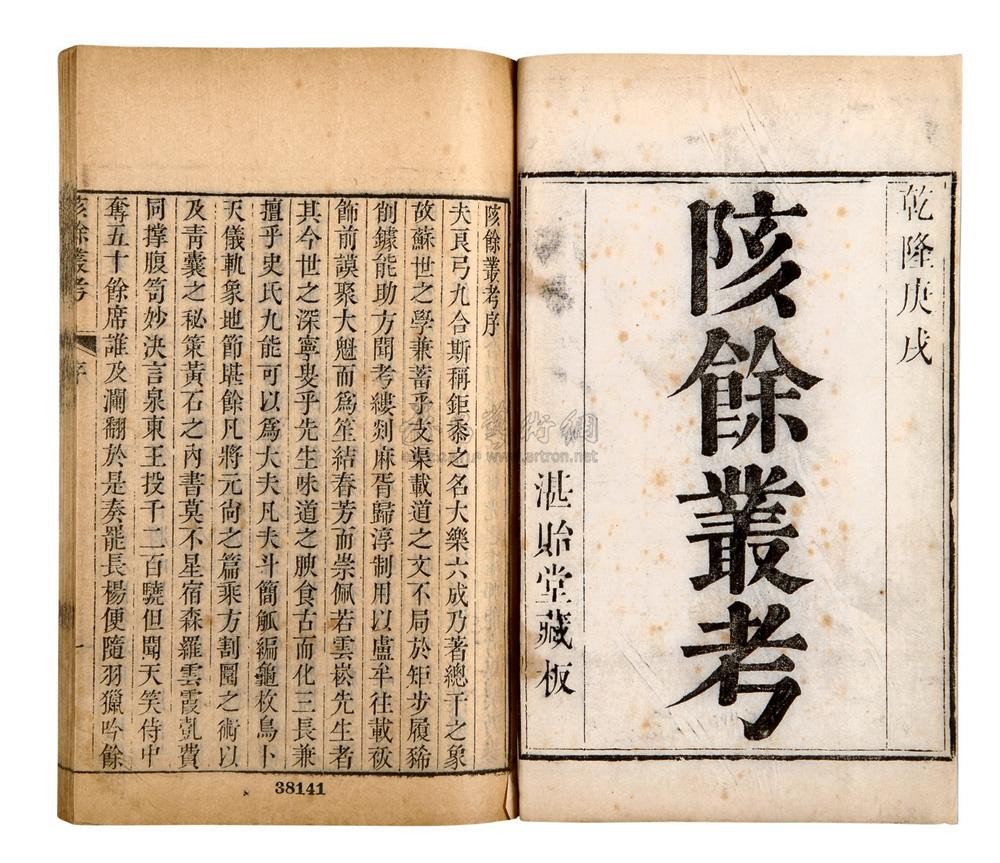 乾隆庚戌
陔餘叢考
湛貽堂藏板
陔餘叢考序
夫良弓九合斯稱鉅黍之名大樂六成乃著總干之象
故蘇世之學兼蓄乎支渠載道之文不局於矩步履豨
削鐻能助方聞考縷剡麻胥歸淳制用以盧牟往載
飾前謨聚大魁而為笙結春芳而崇佩若雲崧先生者
其今世之深寧叟乎先生味道之腴食古而化三長兼
擅乎史氏九能可以為大夫凡夫斗簡觚編龜枚鳥卜
天儀軌象地節堪餘凡將元尚之篇乘方割圜之術以
及靑囊之秘策黃石之內書莫不星宿森羅雲霞㲉費
同撐腹笥妙決言泉東王投千二百驍但聞天笑侍中
奪五十餘席誰及瀾翻於是奏罷長楊便隨羽獵吟餘
陔餘叢考
序
一
38141
www.artron.net